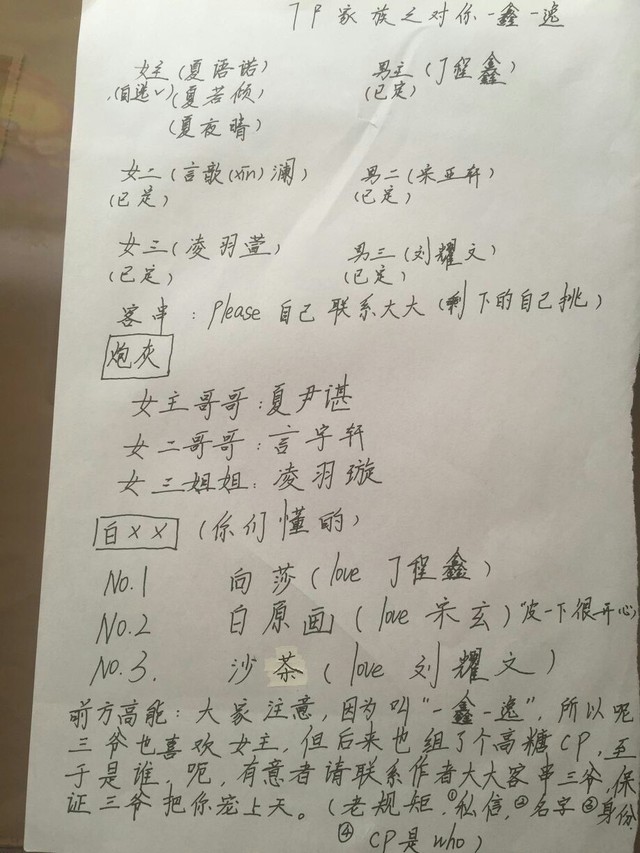 TF家族之对你一鑫一逸
女主(夏语诺) 男主(丁程鑫)
(自选✓)(夏若倾) (已定)
(夏夜晴)
女二(言歆(xīn)澜) 男二(宋亚轩)
(已定) (已定)
女三(凌羽萱) 男三(刘耀文)
(已定) (已定)
客串:please自己联系大大(剩下的自己挑)
炮灰
女主哥哥:夏尹谌
女二哥哥:言宇轩
女三姐姐:凌羽璇
白××(你们懂的)
No.1 向莎(love 丁程鑫)
No.2 白原画(love 宋玄)皮一下很开心
No.3. 沙茶(love 刘耀文)
前方高能:大家注意,因为叫"一鑫一逸",所以呢
三爷也喜欢女主,但后来也组了个高糖CP,至
于是谁,呃,有意者请联系作者大大客串三爷,保
证三爷把你宠上天。(老规矩,①私信,②名字③身份
④CP是who)